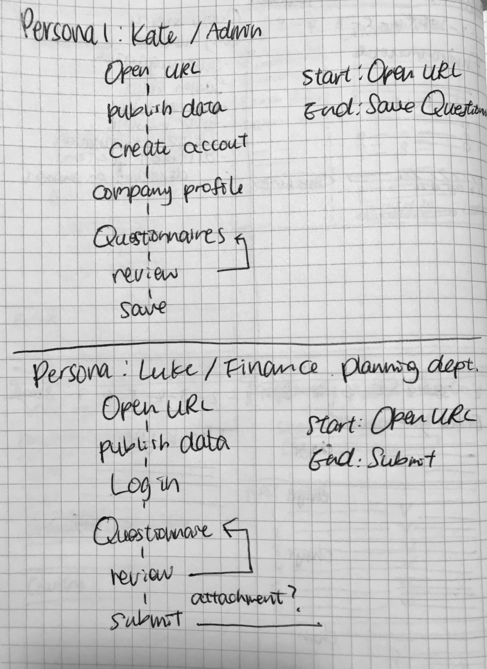 Persona1: Kate / Admin
Open URL
publish data
create accout
company profile
Questionnaires
review
save
Start: Open URL
End: Save Question
Persona: Luke / Finance planning dept.
Open URL
publish data
Log in
Questionnare
review
attachment?
submit
Start: Open URL
End: Submit